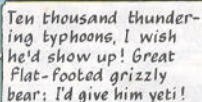 Ten thousand thunder-
ing typhoons, I wish
he'd show up! Great
flat-footed grizzly
bear: I'd give him yeti!